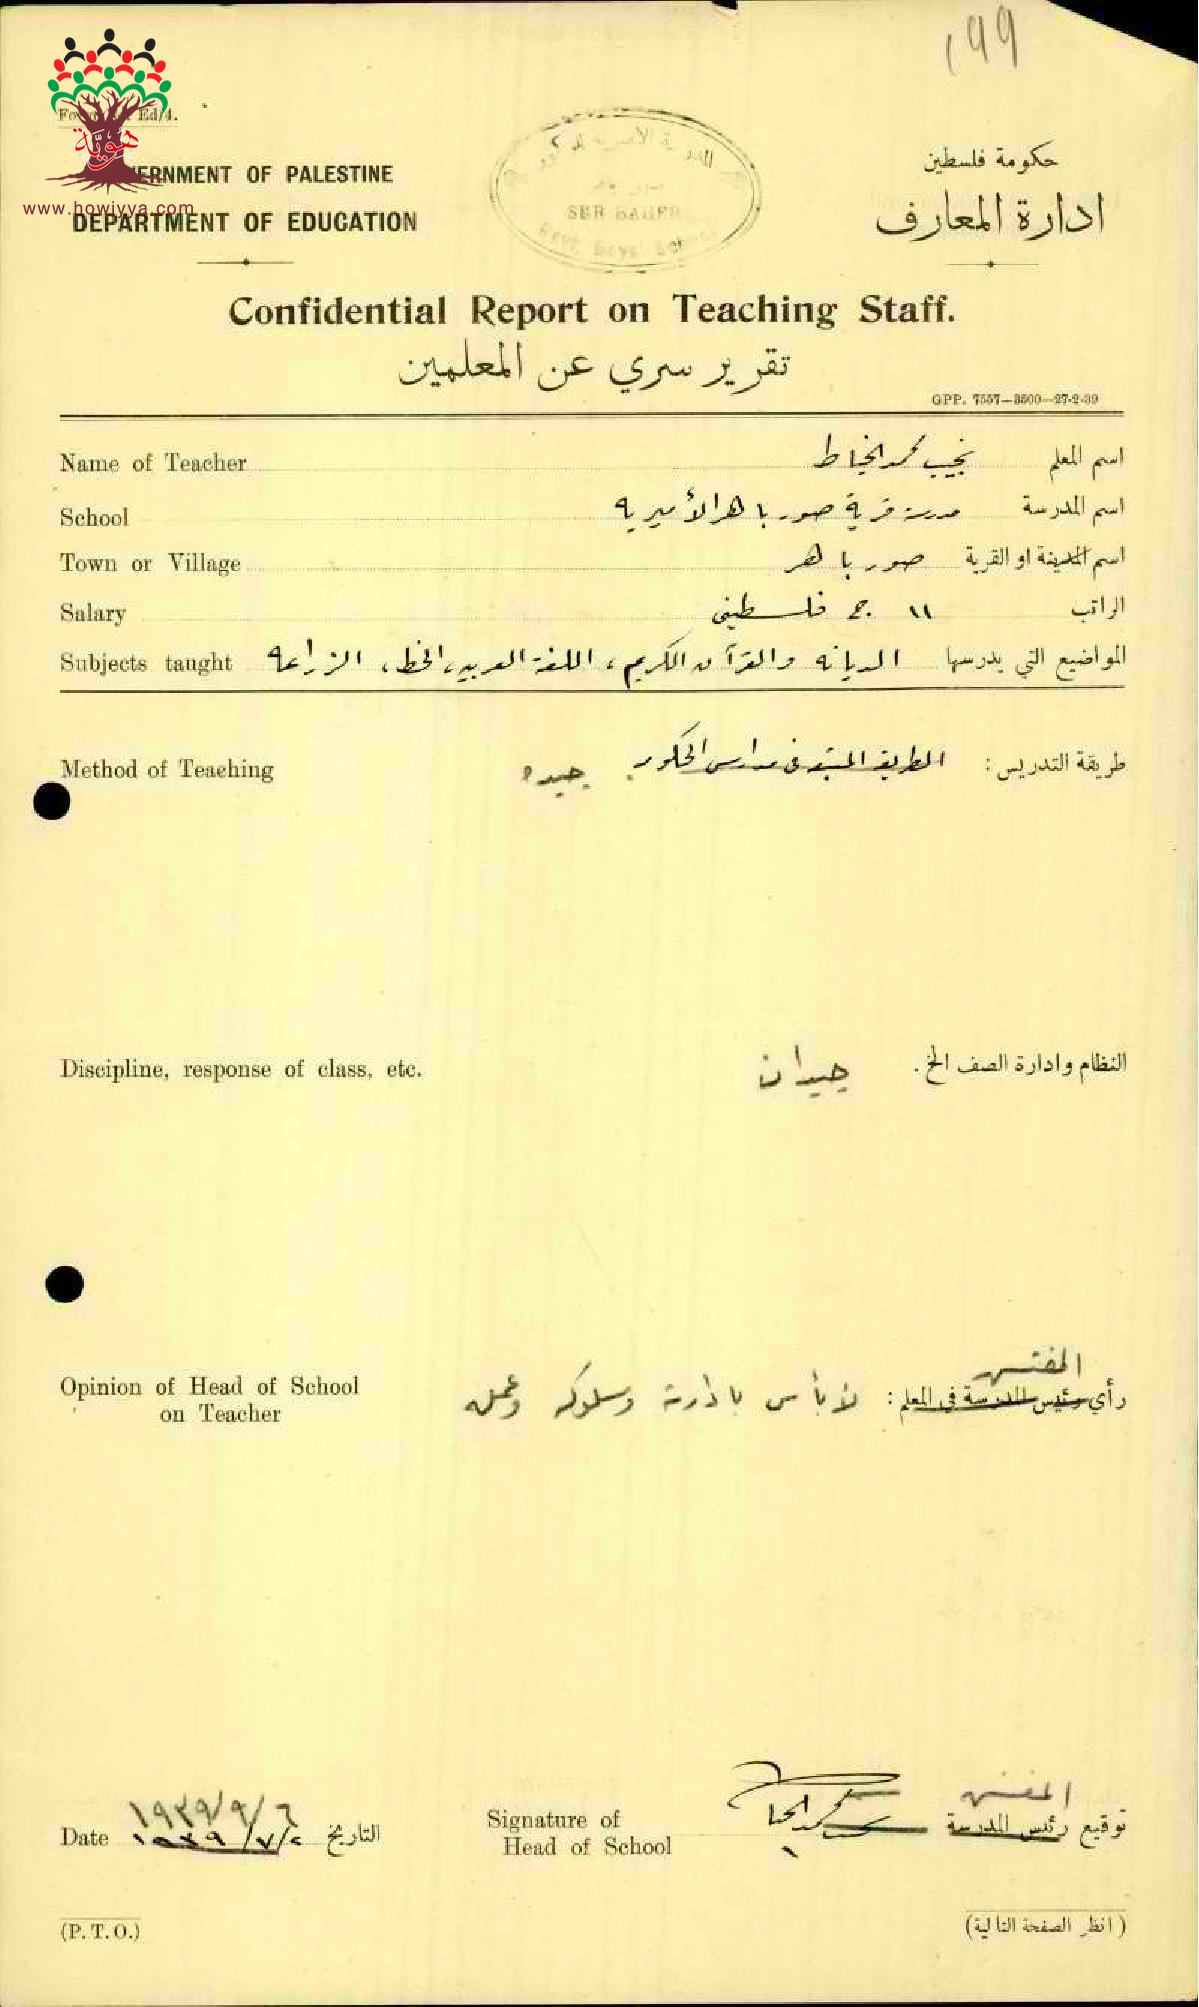 ١٩٩
هويّة
www.howiyya.com
Ed/4.
GOVERNMENT OF PALESTINE
DEPARTMENT OF EDUCATION
SUR BAHER
Govt. Boys' School
حكومة فلسطين
ادارة المعارف
Confidential Report on Teaching Staff.
تقرير سري عن المعلمين
GPP. 7557—3500—27-2-39
Name of Teacher نجيب محمد الخياط اسم المعلم
School مدرسة قرية صور باهر الأميرية اسم المدرسة
Town or Village صور باهر اسم المدينة او القرية
Salary ١١ ج فلسطيني الراتب
Subjects taught الديانة والقرآن الكريم، اللغة العربية، الخط، الزراعة المواضيع التي يدرسها
Method of Teaching جيدة الطريقة المتبعة في مدارس الحكومة طريقة التدريس :
Discipline, response of class, etc. جيدان النظام وادارة الصف الخ.
المفتش
Opinion of Head of School لا بأس بادارته وسلوكه وعمله رأي رئيس المدرسة في المعلم :
on Teacher
١٩٣٩/٩/٦ المفتش
Date ١٩٣٩/٧/٢ التاريخ Signature of توقيع رئيس المدرسة
Head of School
(P. T. O.) (انظر الصفحة التالية)